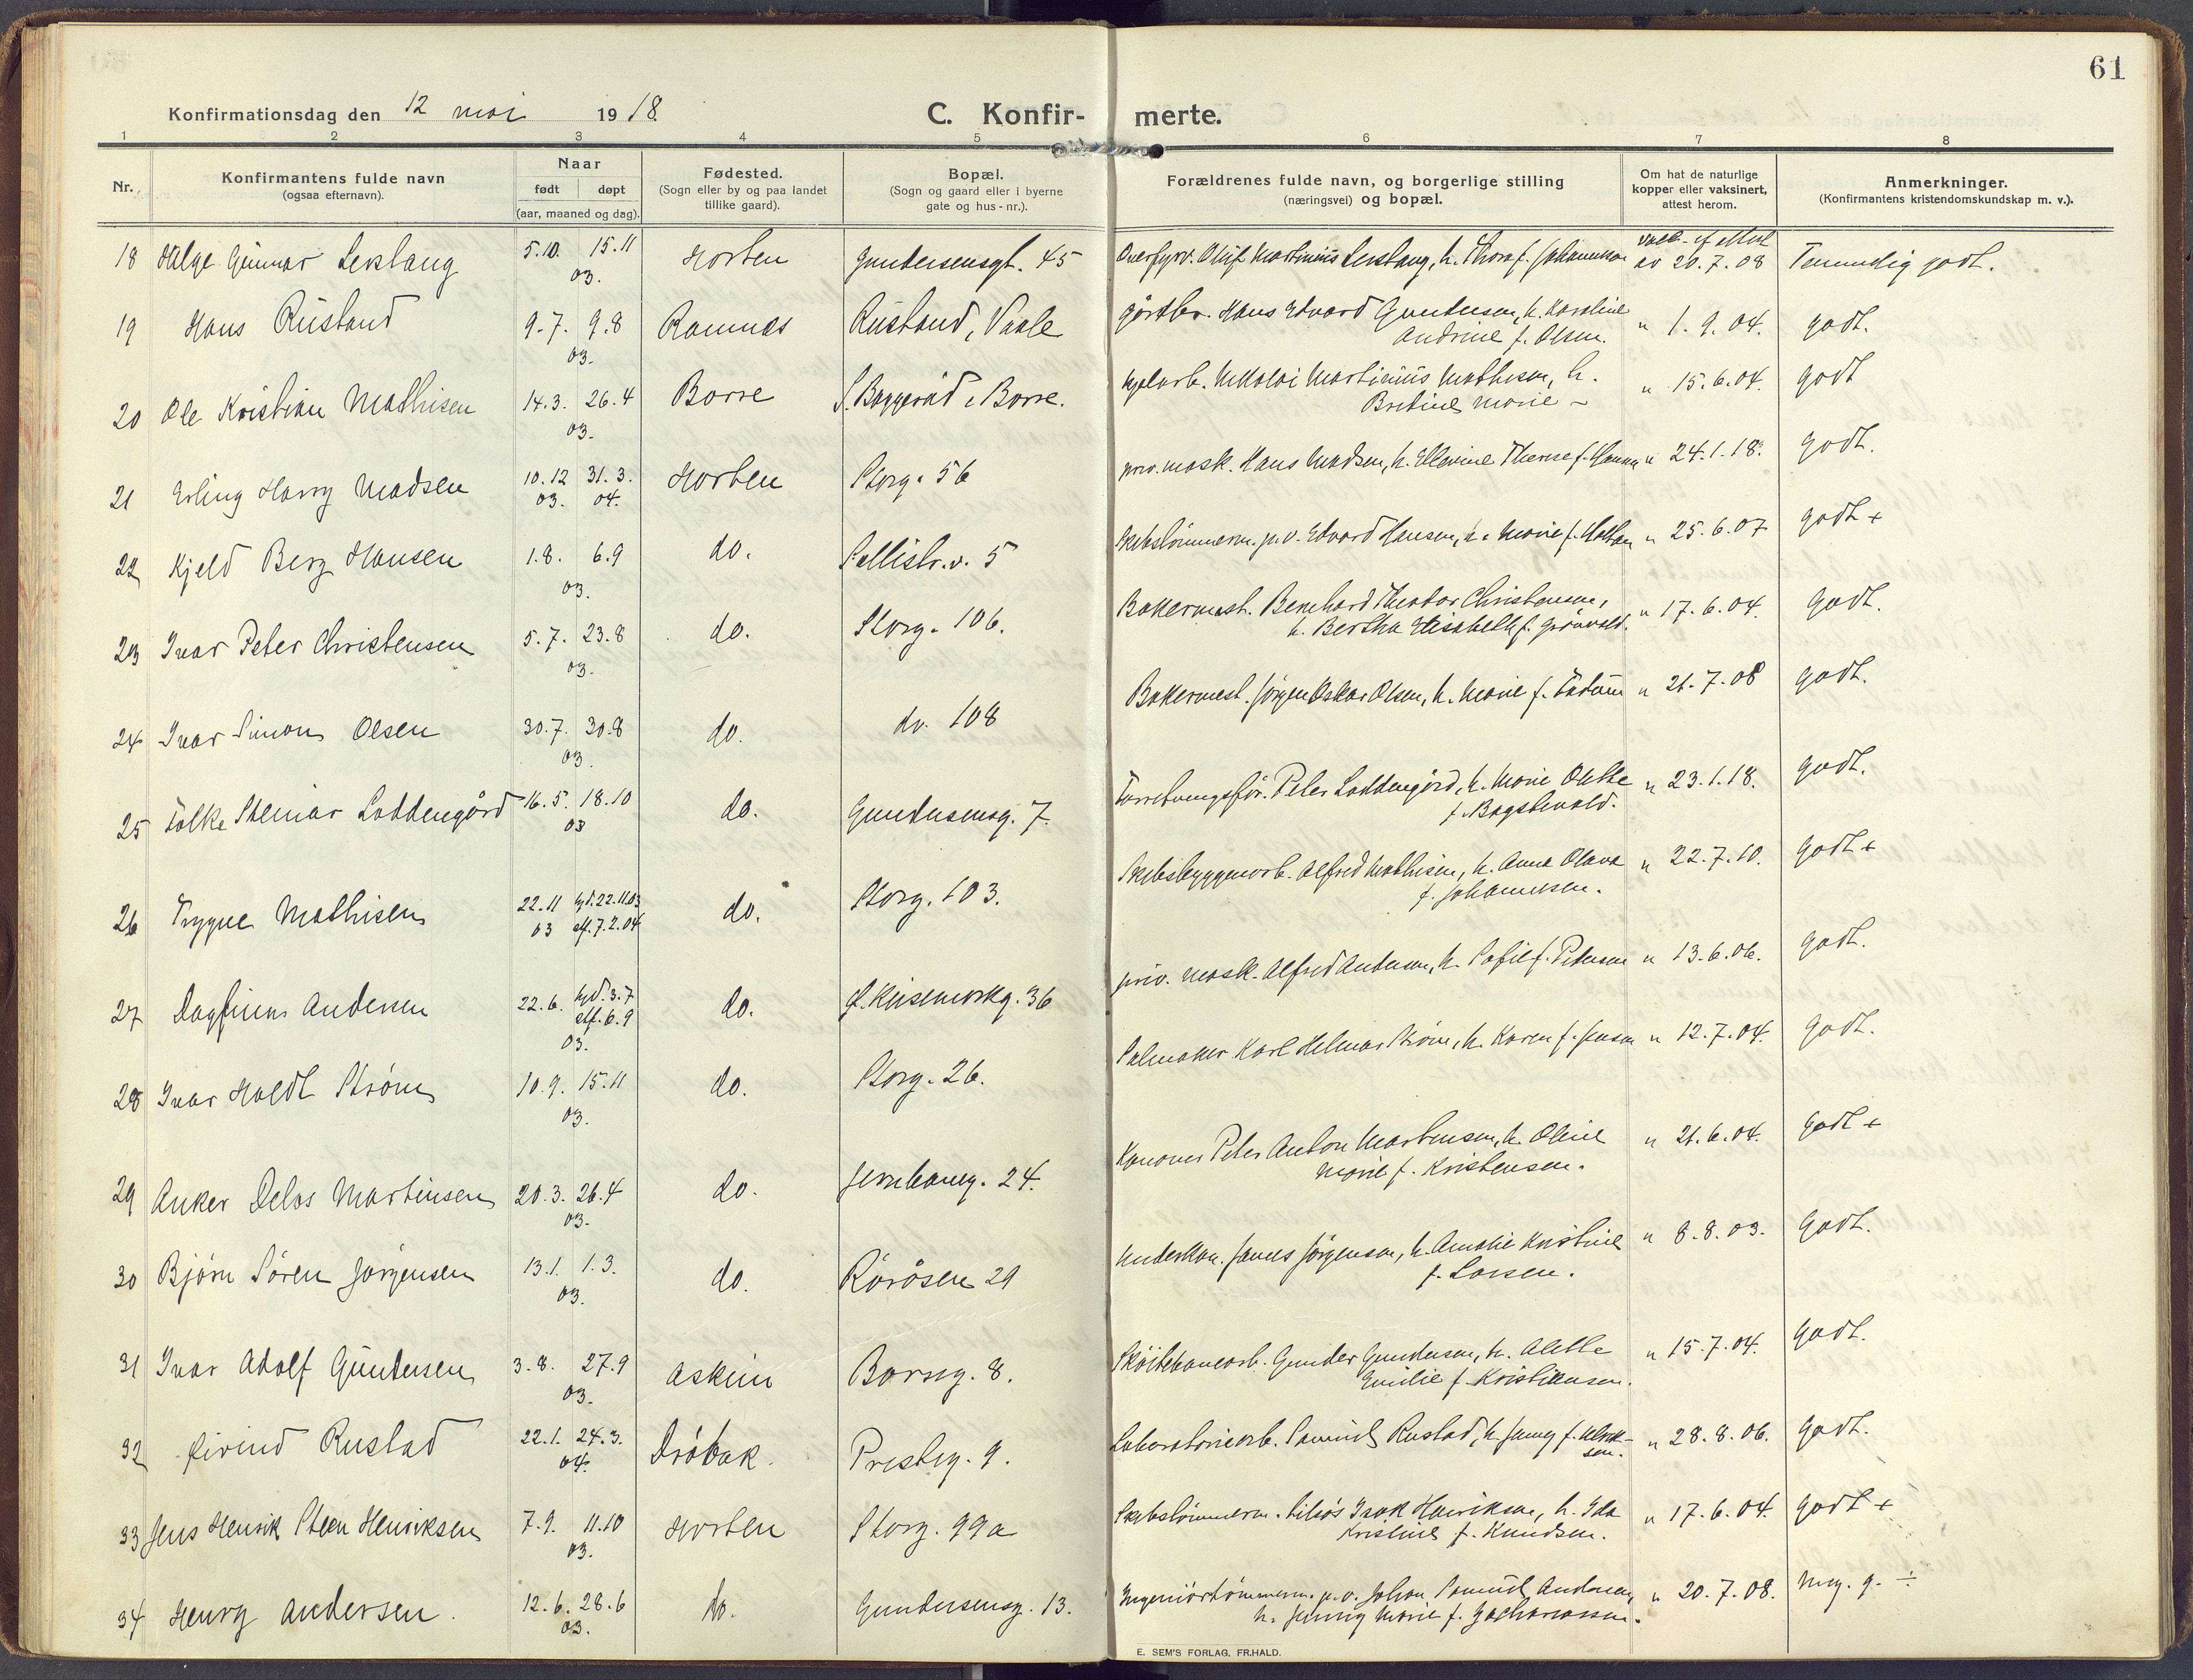 61
Konfirmationsdag den 12 mai 1918.
C. Konfirmerte.
1 2 3 4 5 6 7 8
Nr. Konfirmantens fulde navn (ogsaa efternavn). Naar født døpt (aar, maaned og dag). Fødested. (Sogn eller by og paa landet tillike gaard). Bopæl. (Sogn og gaard eller i byerne gate og hus-nr.). Forældrenes fulde navn, og borgerlige stilling (næringsvei) og bopæl. Om hat de naturlige kopper eller vaksinert, attest herom. Anmerkninger. (Konfirmantens kristendomskundskap m. v.).
18 Helge Gunnar 5.10. 15.11 03. Horten Gundersensgt. 45 Oluf Martinius h. Thora f. av 20.7.08 Temmelig godt.
19 Hans Rustand 9.7. 9.8 03. Ramnes Rustand, Vaale gårdbr. Hans Edvard Gundersen, h. Karoline
Andrine f. Olsen. " 1.9.04. godt.
20 Ole Kristian Mathisen 14.3. 26.4 03. Borre Borre. Nikolai Martinius Mathisen, h.
Marie - " 15.6.04. godt
21 Erling Harry Madsen 10.12 03. 31.3. 04. Horten Storg. 56 priv. mask. Hans Madsen, h. Therese f. " 24.1.18. godt.
22 Kjeld Berg Hansen 1.8. 6.9 03. do. 5 Edvard Hansen, h. Marie f. " 25.6.07 godt +
23 Ivar Peter Christensen 5.7. 23.8 03. do. Storg. 106. Bakermest. Bernhard Theodor Christensen,
h. Bertha Elisabeth f. Grönvold. " 17.6.04. godt.
24 Ivar Simon Olsen 30.7. 30.8 03. do. do. 108 Bakermest. Jörgen Oskar Olsen, h. Marie f. " 21.7.08 godt.
25 Folke Steinar Loddengård 16.5. 18.10 03 do. Gundersensg. 7. Forretningsför. Peter Loddengård, h. Marie
f. " 23.1.18. godt.
26 Trygve Mathisen 22.11 03 hjd. 22.11.03 stf. 7.2.04 do. Storg. 103. Skibsbyggerarb. Alfred Mathisen, h. Anna Olava
f. Johannesen. " 22.7.10. godt +
27 Dagfinn Andersen 22.6. hjd. 3.7 stf. 6.9 03. do. 36 priv. mask. Alfred Andersen, h. Sofie f. Petersen " 13.6.06. godt.
28 Ivar Holdt Strøm 10.9. 15.11 03. do. Storg. 26. Salmaker Karl Helmer Strøm, h. Karen f. Jensen " 12.7.04. godt.
29 Anker Delos Martinsen 20.3. 26.4 03. do. Jernbaneg. 24. Kanoner Peter Anton Martinsen, h. Oline
Marie f. Kristensen. " 21.6.04. godt +
30 Bjørn Sören Jörgensen 13.1. 1.3. 03. do. Röråsen 29 Underkan. James Jörgensen, h. Amalie Kristine
f. Larsen. " 8.8.03. godt.
31 Ivar Adolf Gundersen 3.8. 27.9 03. Askim Borreg. 8. Gunder Gundersen, h. Alette
Emilie f. Kristiansen. " 15.7.04. godt.
32 Øivind Rustad 22.1. 24.3. 04. Dröbak. Presteg. 9. Laboratoriearb. Samuel Rustad, h. Jenny f. " 28.8.06. godt.
33 Jens Henrik Steen Henriksen 7.9. 11.10 03. Horten Storg. 99a Isak Henriksen, h. Ida
Kristine f. Knudsen. " 17.6.04. godt +
34 Henry Andersen. 12.6. 28.6 03. do. Gundersensg. 13. Johan Samuel Andersen,
h. Jenny Marie f. Zachariassen. " 20.7.08. meg. g. ÷
E. SEM'S FORLAG, FR.HALD.